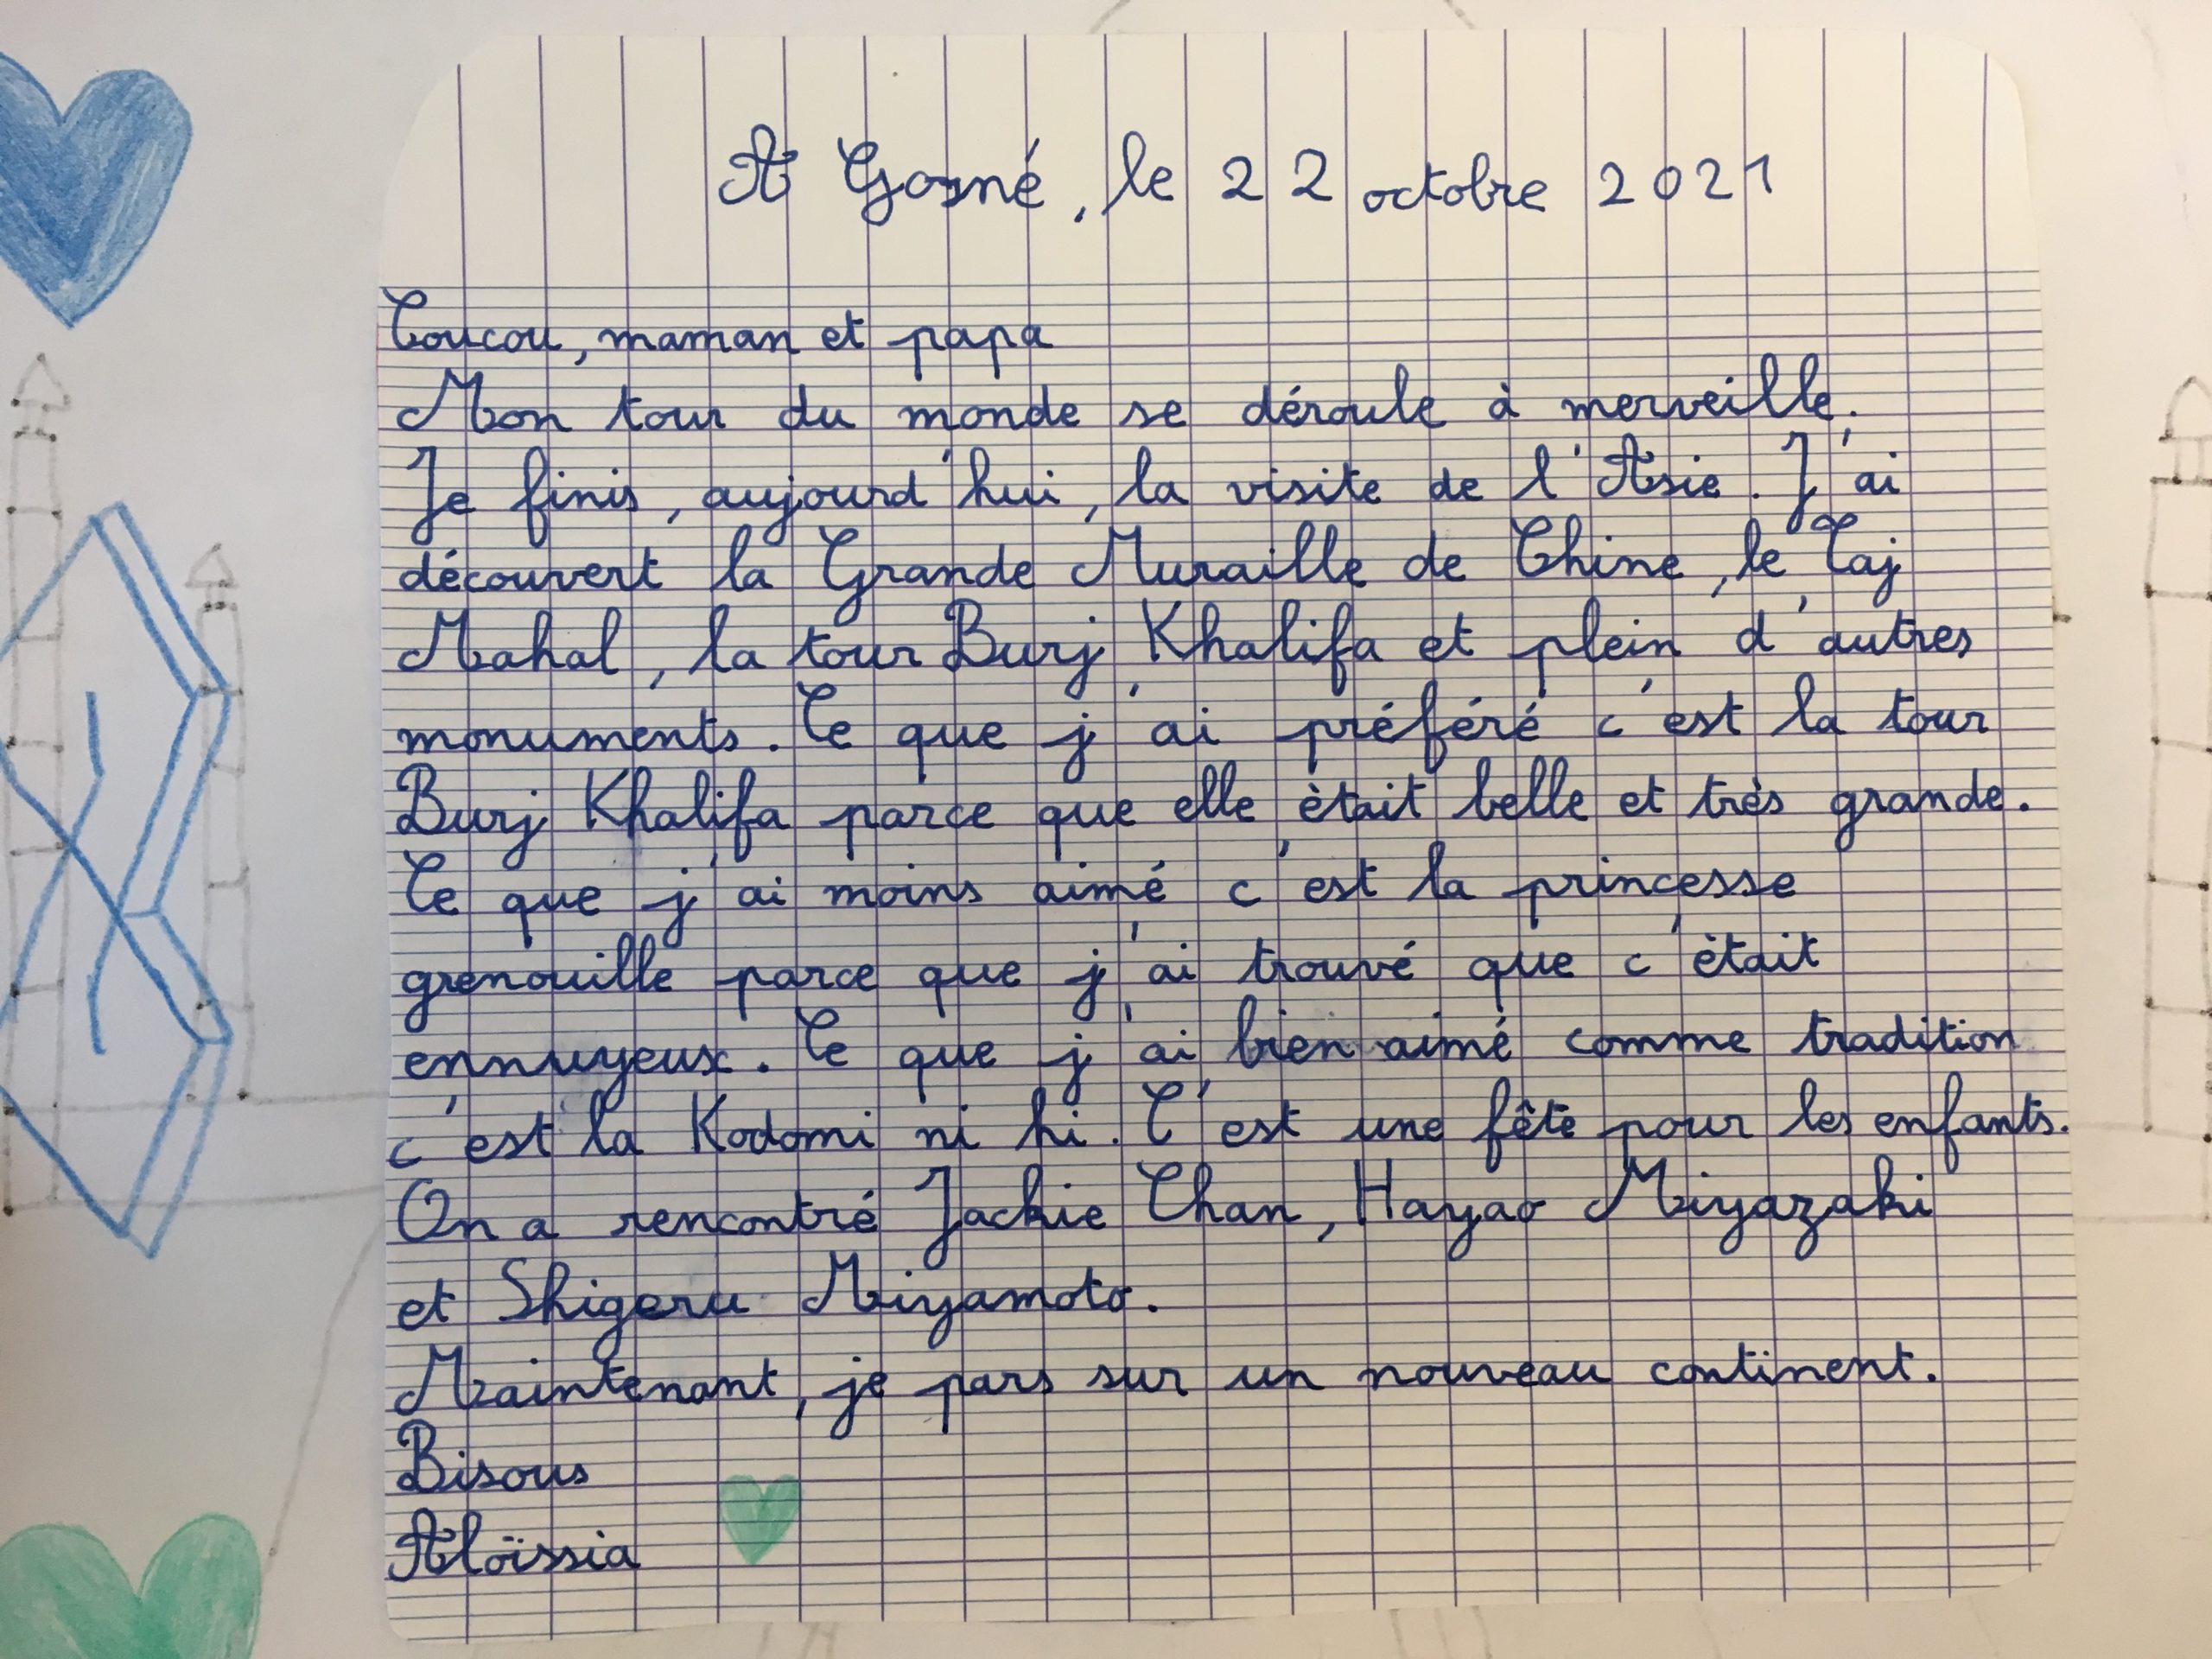 A Gosné, le 22 octobre 2021
Coucou, maman et papa
Mon tour du monde se déroule à merveille.
Je finis, aujourd'hui, la visite de l'Asie. J'ai
découvert la Grande Muraille de Chine, le Taj
Mahal, la tour Burj Khalifa et plein d'autres
monuments. Ce que j'ai préféré c'est la tour
Burj Khalifa parce que elle était belle et très grande.
Ce que j'ai moins aimé c'est la princesse
grenouille parce que j'ai trouvé que c'était
ennuyeux. Ce que j'ai bien aimé comme tradition
c'est la Kodomi ni hi. C'est une fête pour les enfants.
On a rencontré Jackie Chan, Hayao Miyazaki
et Shigeru Miyamoto.
Maintenant, je pars sur un nouveau continent.
Bisous
Aloïssia